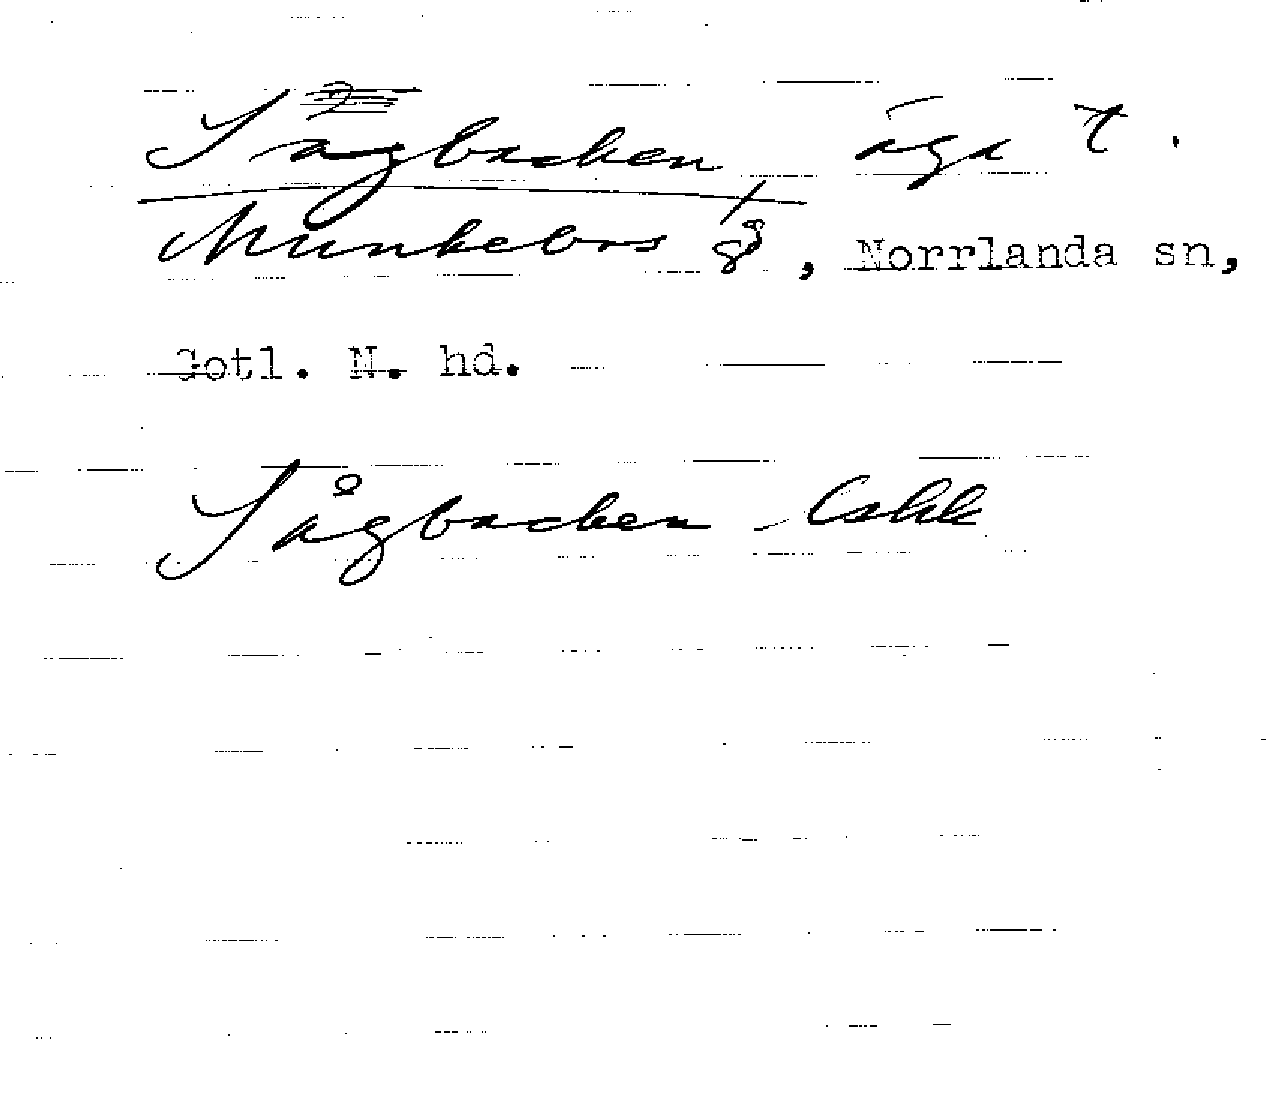 Sågbacken, äga t.
Munkebos 8/3, Norrlanda sn,
Gotl. N. hd.
Sågbacken